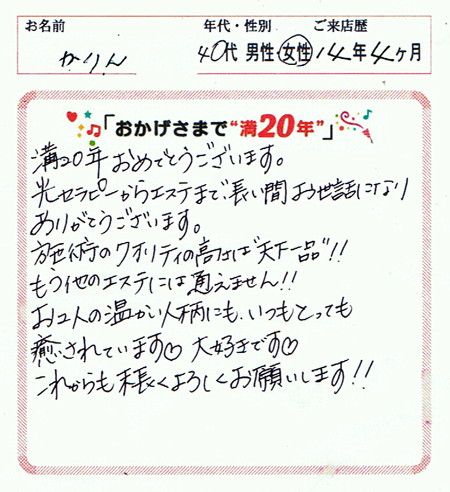 お名前 年代・性別 ご来店歴
かりん 40代 男性 女性 14年4ヶ月
「おかげさまで“満20年”」
満20年おめでとうございます。
光セラピーからエステまで、長い間お世話になり
ありがとうございます。
施術のクオリティの高さは“天下一品”!!
もう他のエステには通えません!!
お2人の温かい人柄にも、いつもとっても
癒されています♡ 大好きです♡
これからも末長くよろしくお願いします!!